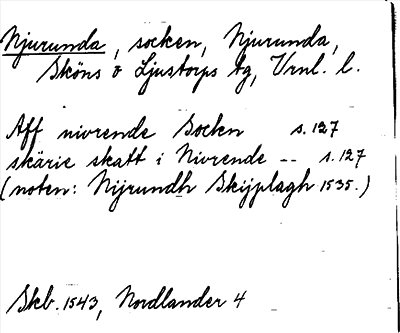 Njurunda, socken, Njurunda,
Sköns o Ljustorps tg, Vrnl. l.
Aff nivrende Socken s. 127
skärie skatt i Nivrende -- s. 127
(noten: Nijrundh Skijplagh 1535.)
Skb. 1543, Nordlander 4